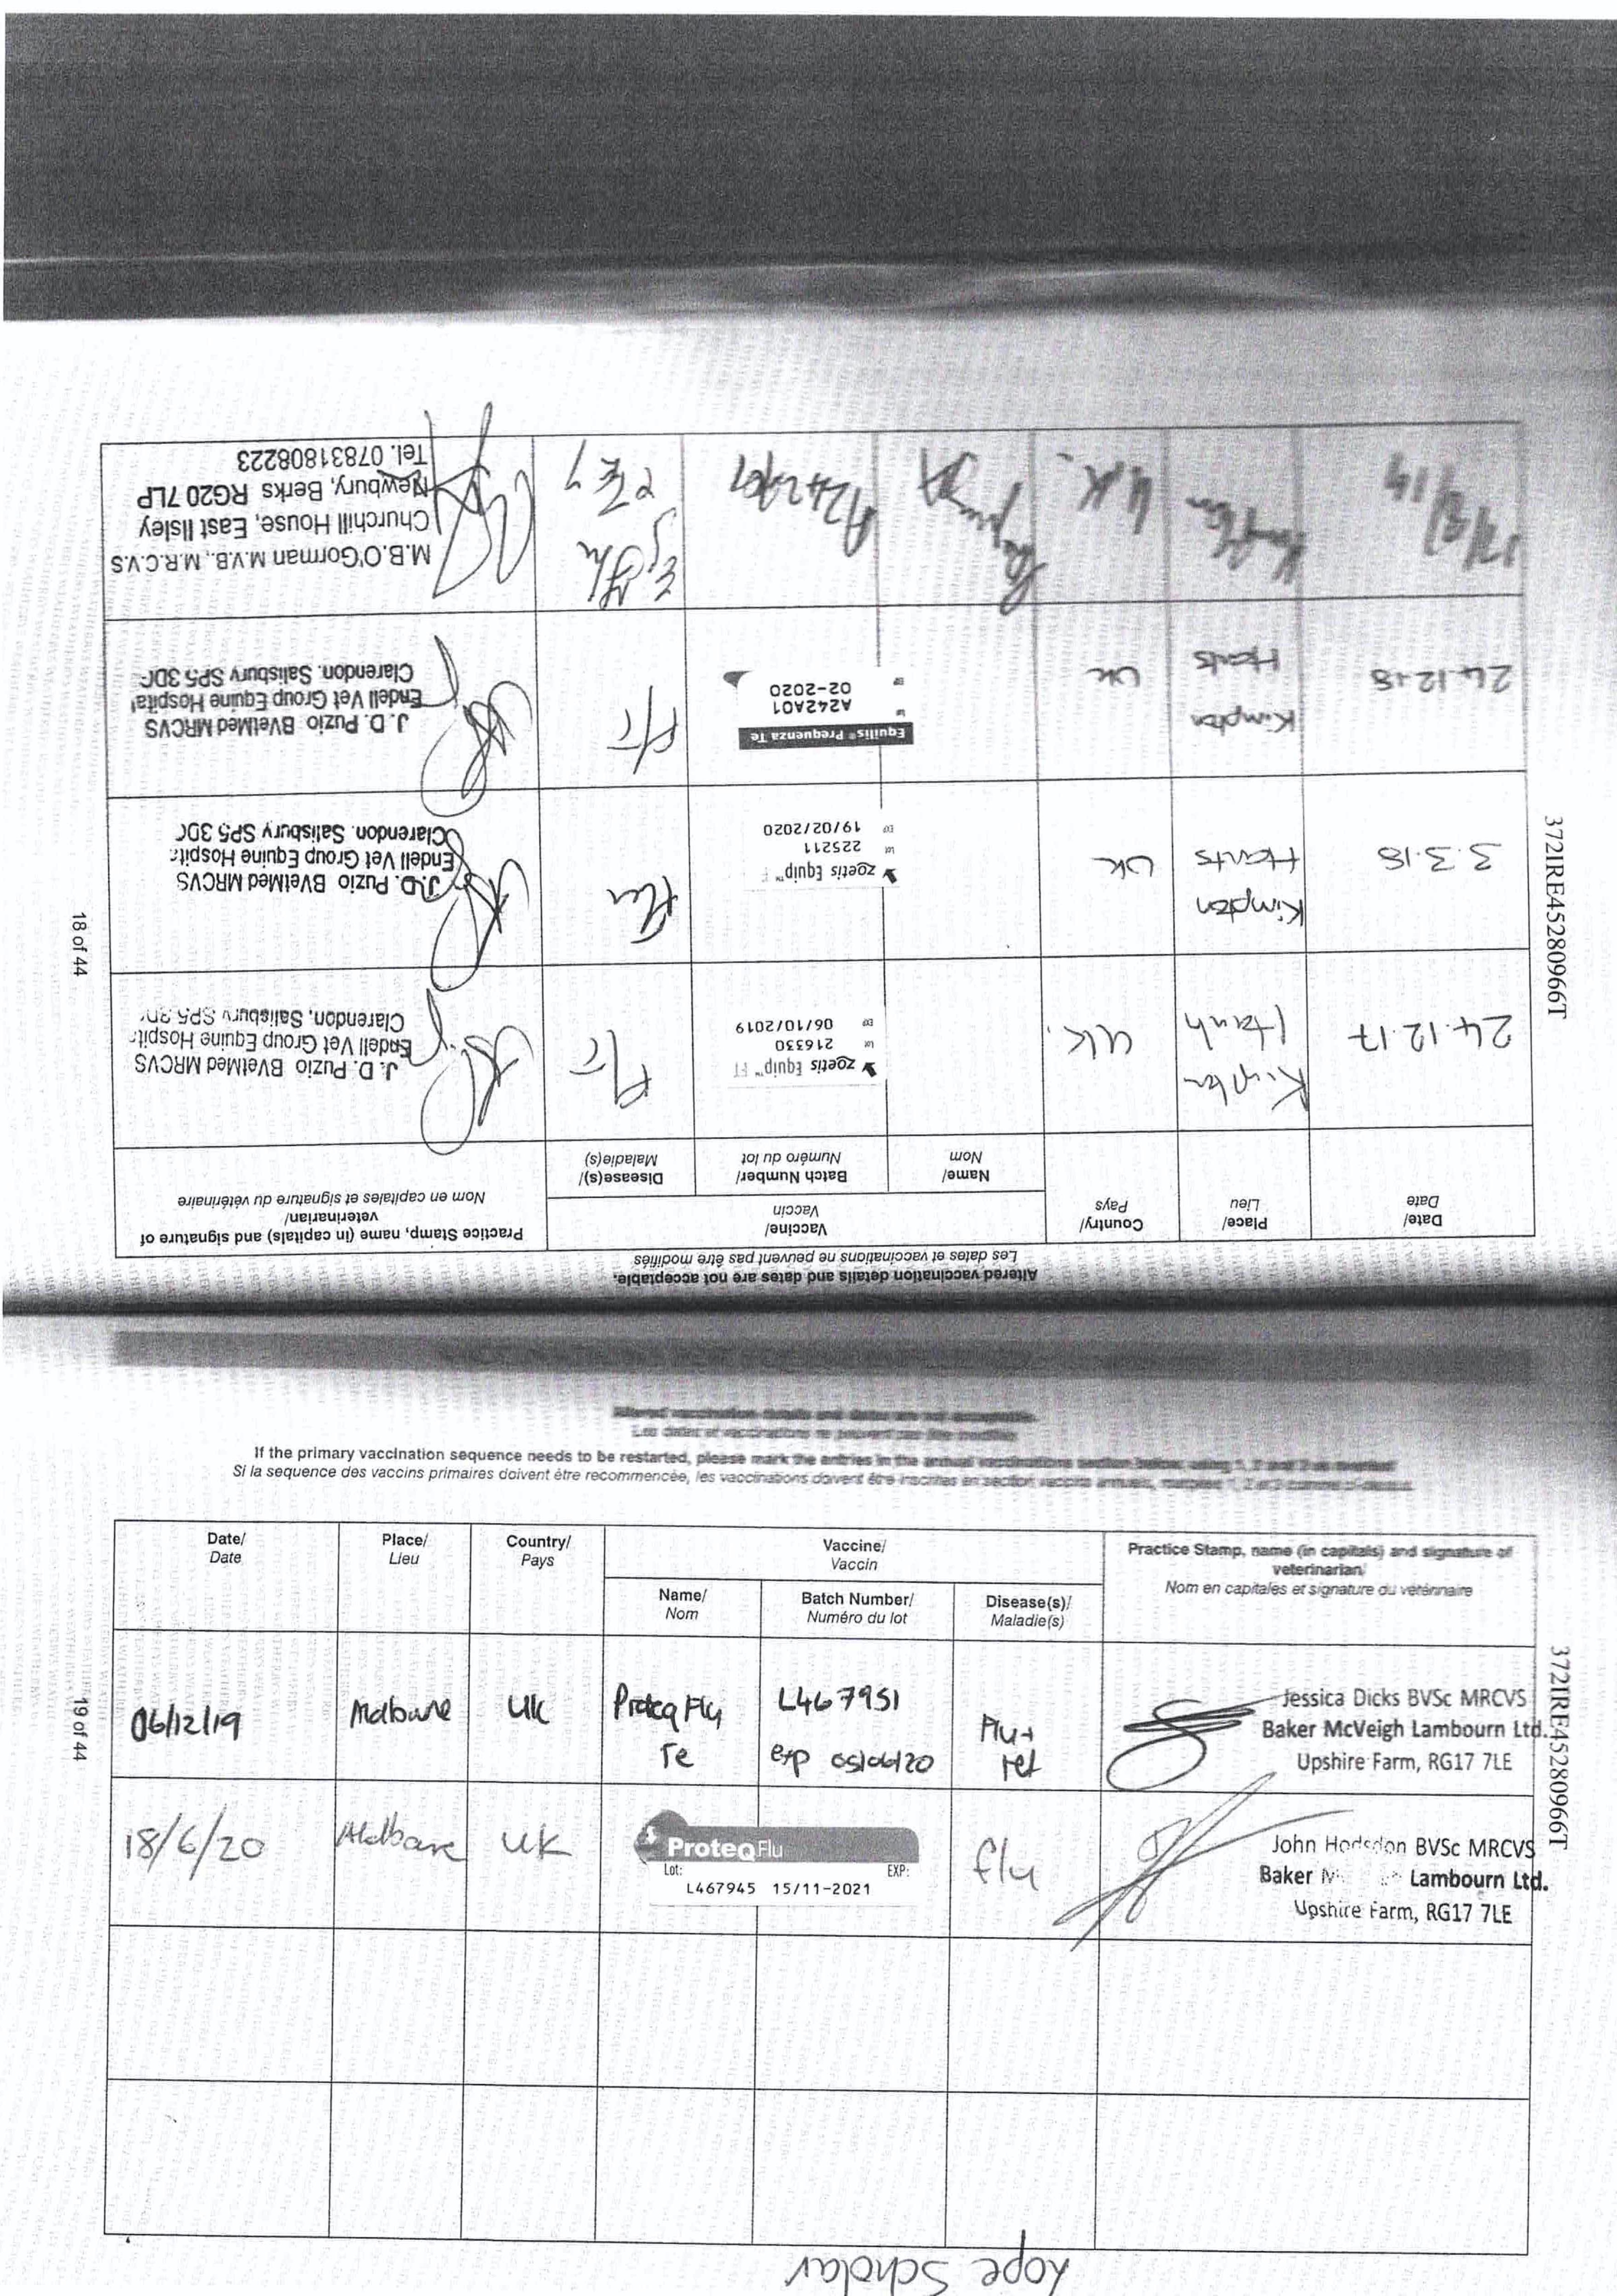 Altered vaccination details and dates are not acceptable.
Les dates et vaccinations ne peuvent pas être modifiés
Date/
Date
Place/
Lieu
Country/
Pays
Vaccine/
Vaccin
Name/
Nom
Batch Number/
Numéro du lot
Disease(s)/
Maladie(s)
Practice Stamp, name (in capitals) and signature of
veterinarian/
Nom en capitales et signature du vétérinaire
24.12.17
Kimpton
Hants
UK.
zoetis Equip™ FT
Lot 216330
EXP 06/10/2019
F/T
J. D. Puzio BVetMed MRCVS
Endell Vet Group Equine Hospit
Clarendon, Salisbury SP5
3.3.18
Kimpton
Hants
UK
zoetis Equip™ F
Lot 225211
EXP 19/02/2020
Flu
J.D. Puzio BVetMed MRCVS
Endell Vet Group Equine Hospit
Clarendon. Salisbury SP5 3DG
24.12.18
Kimpton
Hants
UK
Equilis® Prequenza Te
A242A01
02-2020
F/T
J. D. Puzio BVetMed MRCVS
Endell Vet Group Equine Hospita
Clarendon. Salisbury SP5 3D
Kimpton
U.K.
M.B.O'Gorman M.V.B., M.R.C.V.S
Churchill House, East Ilsley
Newbury, Berks RG20 7LP
Tel. 07831808223
18 of 44
372IRE45280966T
Altered vaccination details and dates are not acceptable.
Les dates et vaccinations ne peuvent pas être modifiés
If the primary vaccination sequence needs to be restarted, please mark the entries in the annual vaccinations section below, using 1, 2 and
Si la sequence des vaccins primaires doivent être recommencée, les vaccinations doivent être inscrites en section vaccins annuels,
Date/
Date
Place/
Lieu
Country/
Pays
Vaccine/
Vaccin
Name/
Nom
Batch Number/
Numéro du lot
Disease(s)/
Maladie(s)
Practice Stamp, name (in capitals) and signature of
veterinarian/
Nom en capitales et signature du vétérinaire
06/12/19
UK
Proteq Flu
Te
L467951
exp 05/06/20
Flu +
tet
Jessica Dicks BVSc MRCVS
Baker McVeigh Lambourn Ltd.
Upshire Farm, RG17 7LE
18/6/20
UK
ProteqFlu
Lot: EXP:
L467945 15/11-2021
flu
John Hodsdon BVSc MRCVS
Baker Lambourn Ltd.
Upshire Farm, RG17 7LE
19 of 44
372IRE45280966T
Scholar